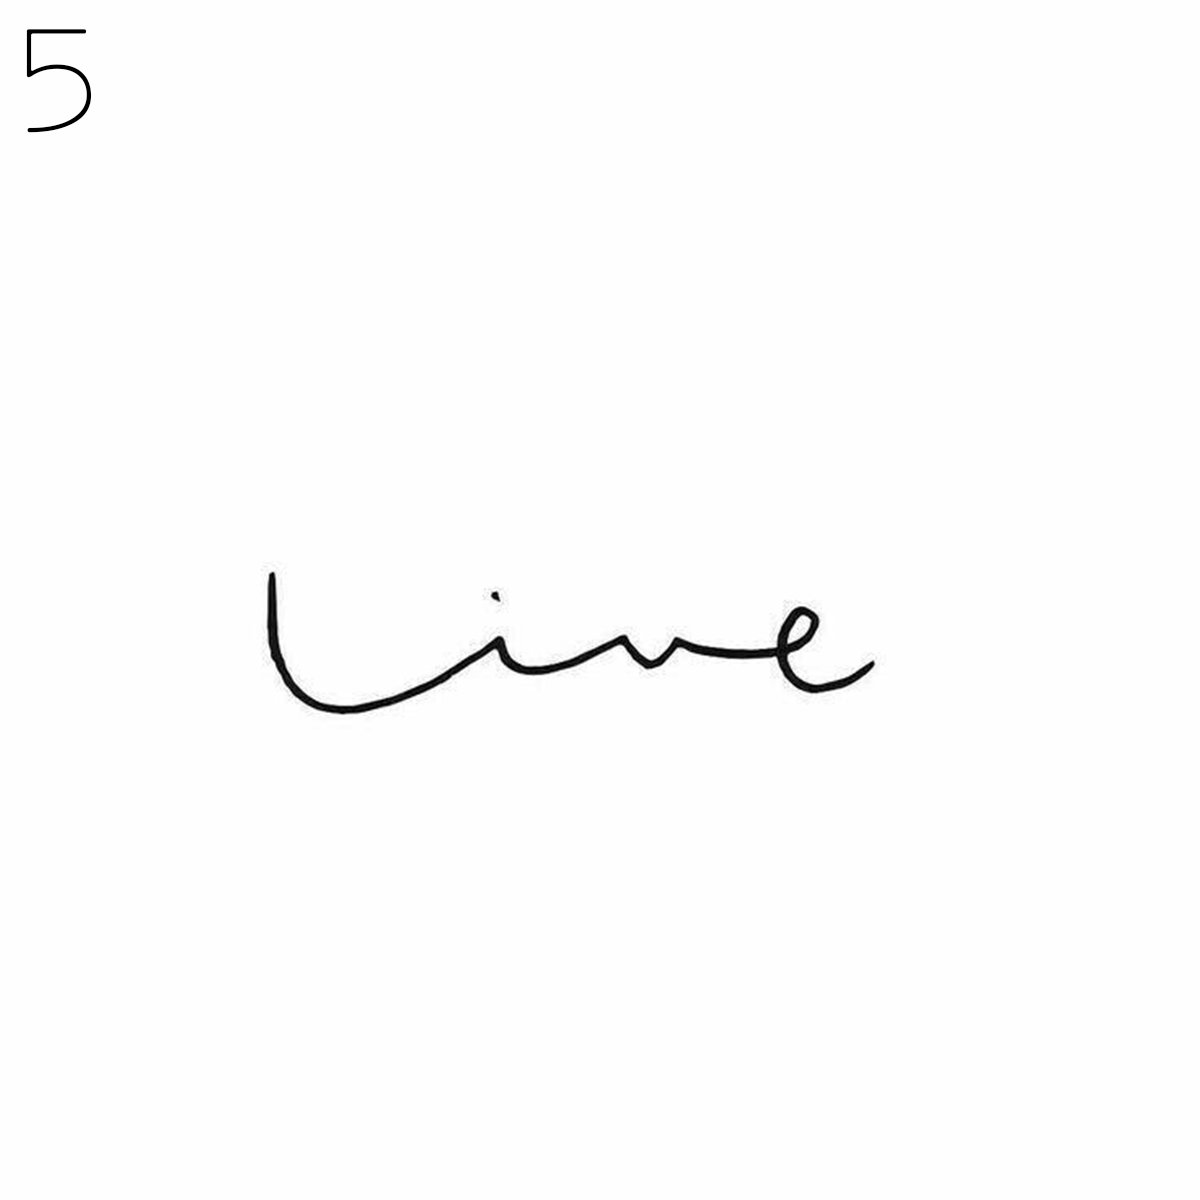 5
Live